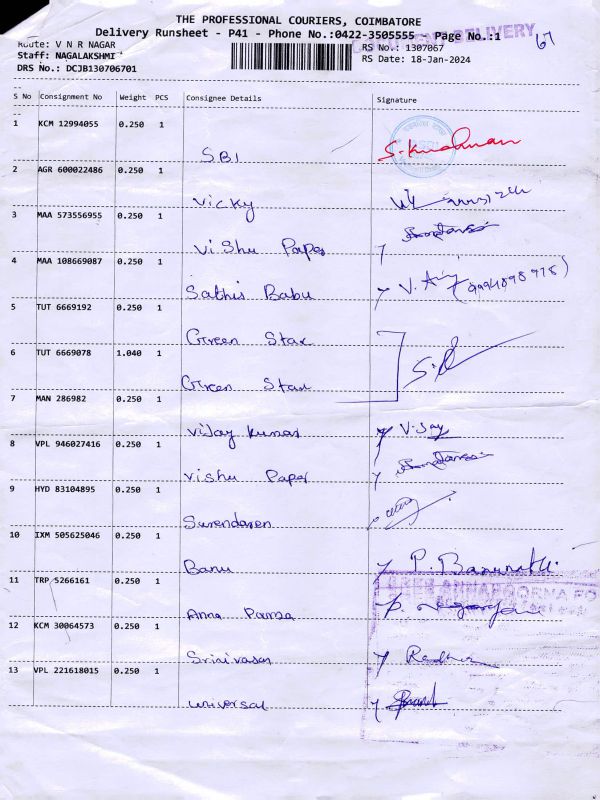 THE PROFESSIONAL COURIERS, COIMBATORE
Delivery Runsheet - P41 - Phone No.:0422-3505555 Page No.:1
DELIVERY
67
Route: V N R NAGAR
RS No.: 1307067
Staff: NAGALAKSHMI
RS Date: 18-Jan-2024
DRS No.: DCJB130706701
S No Consignment No Weight PCS Consignee Details Signature
1 KCM 12994055 0.250 1
SBI
2 AGR 600022486 0.250 1
Vicky
3 MAA 573556955 0.250 1
Vishu Paper
4 MAA 108669087 0.250 1
Sathis Babu (9994898978)
5 TUT 6669192 0.250 1
Green Star
6 TUT 6669078 1.040 1
Green Star
7 MAN 286982 0.250 1
Vijay kumar V.Jay
8 VPL 946027416 0.250 1
Vishu Paper
9 HYD 83104895 0.250 1
Surendaren
10 IXM 505625046 0.250 1
Banu P. Banumathi
11 TRP 5266161 0.250 1
SREE ANNAPOORNA FO
Anna Purna
12 KCM 30064573 0.250 1
Srinivasan Radha
13 VPL 221618015 0.250 1
universal